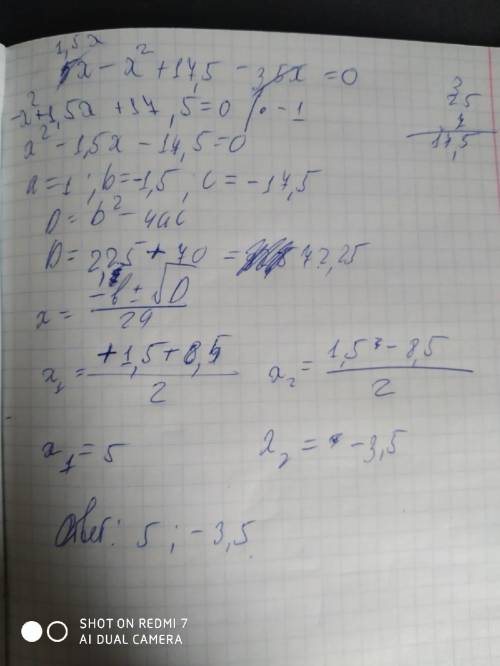 1,5x
5x - x² + 17,5 - 3,5x = 0
-x² + 1,5x + 17,5 = 0 | · -1
x² - 1,5x - 17,5 = 0
a = 1 ; b = -1,5 ; c = -17,5
D = b² - 4ac
D = 2,25 + 70 = 72,25
x = -b ± √D / 2a
x₁ = +1,5 + 8,5 / 2 x₂ = 1,5 - 8,5 / 2
x₁ = 5 x₂ = -3,5
Ответ: 5 ; -3,5
3
2,5
17,5
SHOT ON REDMI 7
AI DUAL CAMERA